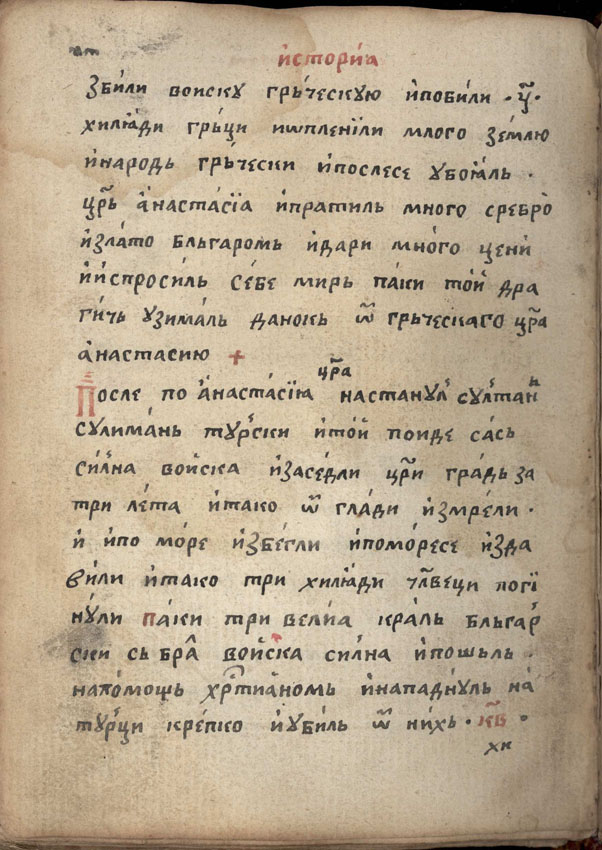 и҆сторїа
збили воиску гръческую и҆побили · ц҃ ·
хилꙗ́ди гръци иѡпленіли млого землю
и҆народь гръчески и҆послесе убоꙗ́ль ·
цр҃ь а҆настасїа и҆пратиль много сребро
и҆злато бльгаромь и҆дари много цени
и҆и҆спросиль себе мирь паки тои҆ дра
гичь узималь данокь ѿ гръческаго цр҃а
а҆настасию +
После по а҆настасїа цр҃а настанул султан
сулимань турски и҆тои҆ поиде сась
силна воиска и҆заседли цр҃и градь за
три лета и҆тако ѿ глади и҆змрели ·
и҆ и҆по море и҆збегли и҆поморесе и҆зда
вили и҆тако три хилꙗ́ди чл҃веци поги
нули паки тривелїа краль бльгар
ски събра воиска силна и҆пошьль ·
напомощь хрⷭ҇тианомь и҆нападнуль на
турци крепко и҆убиль ѿ нихь · к҃в ·
хи